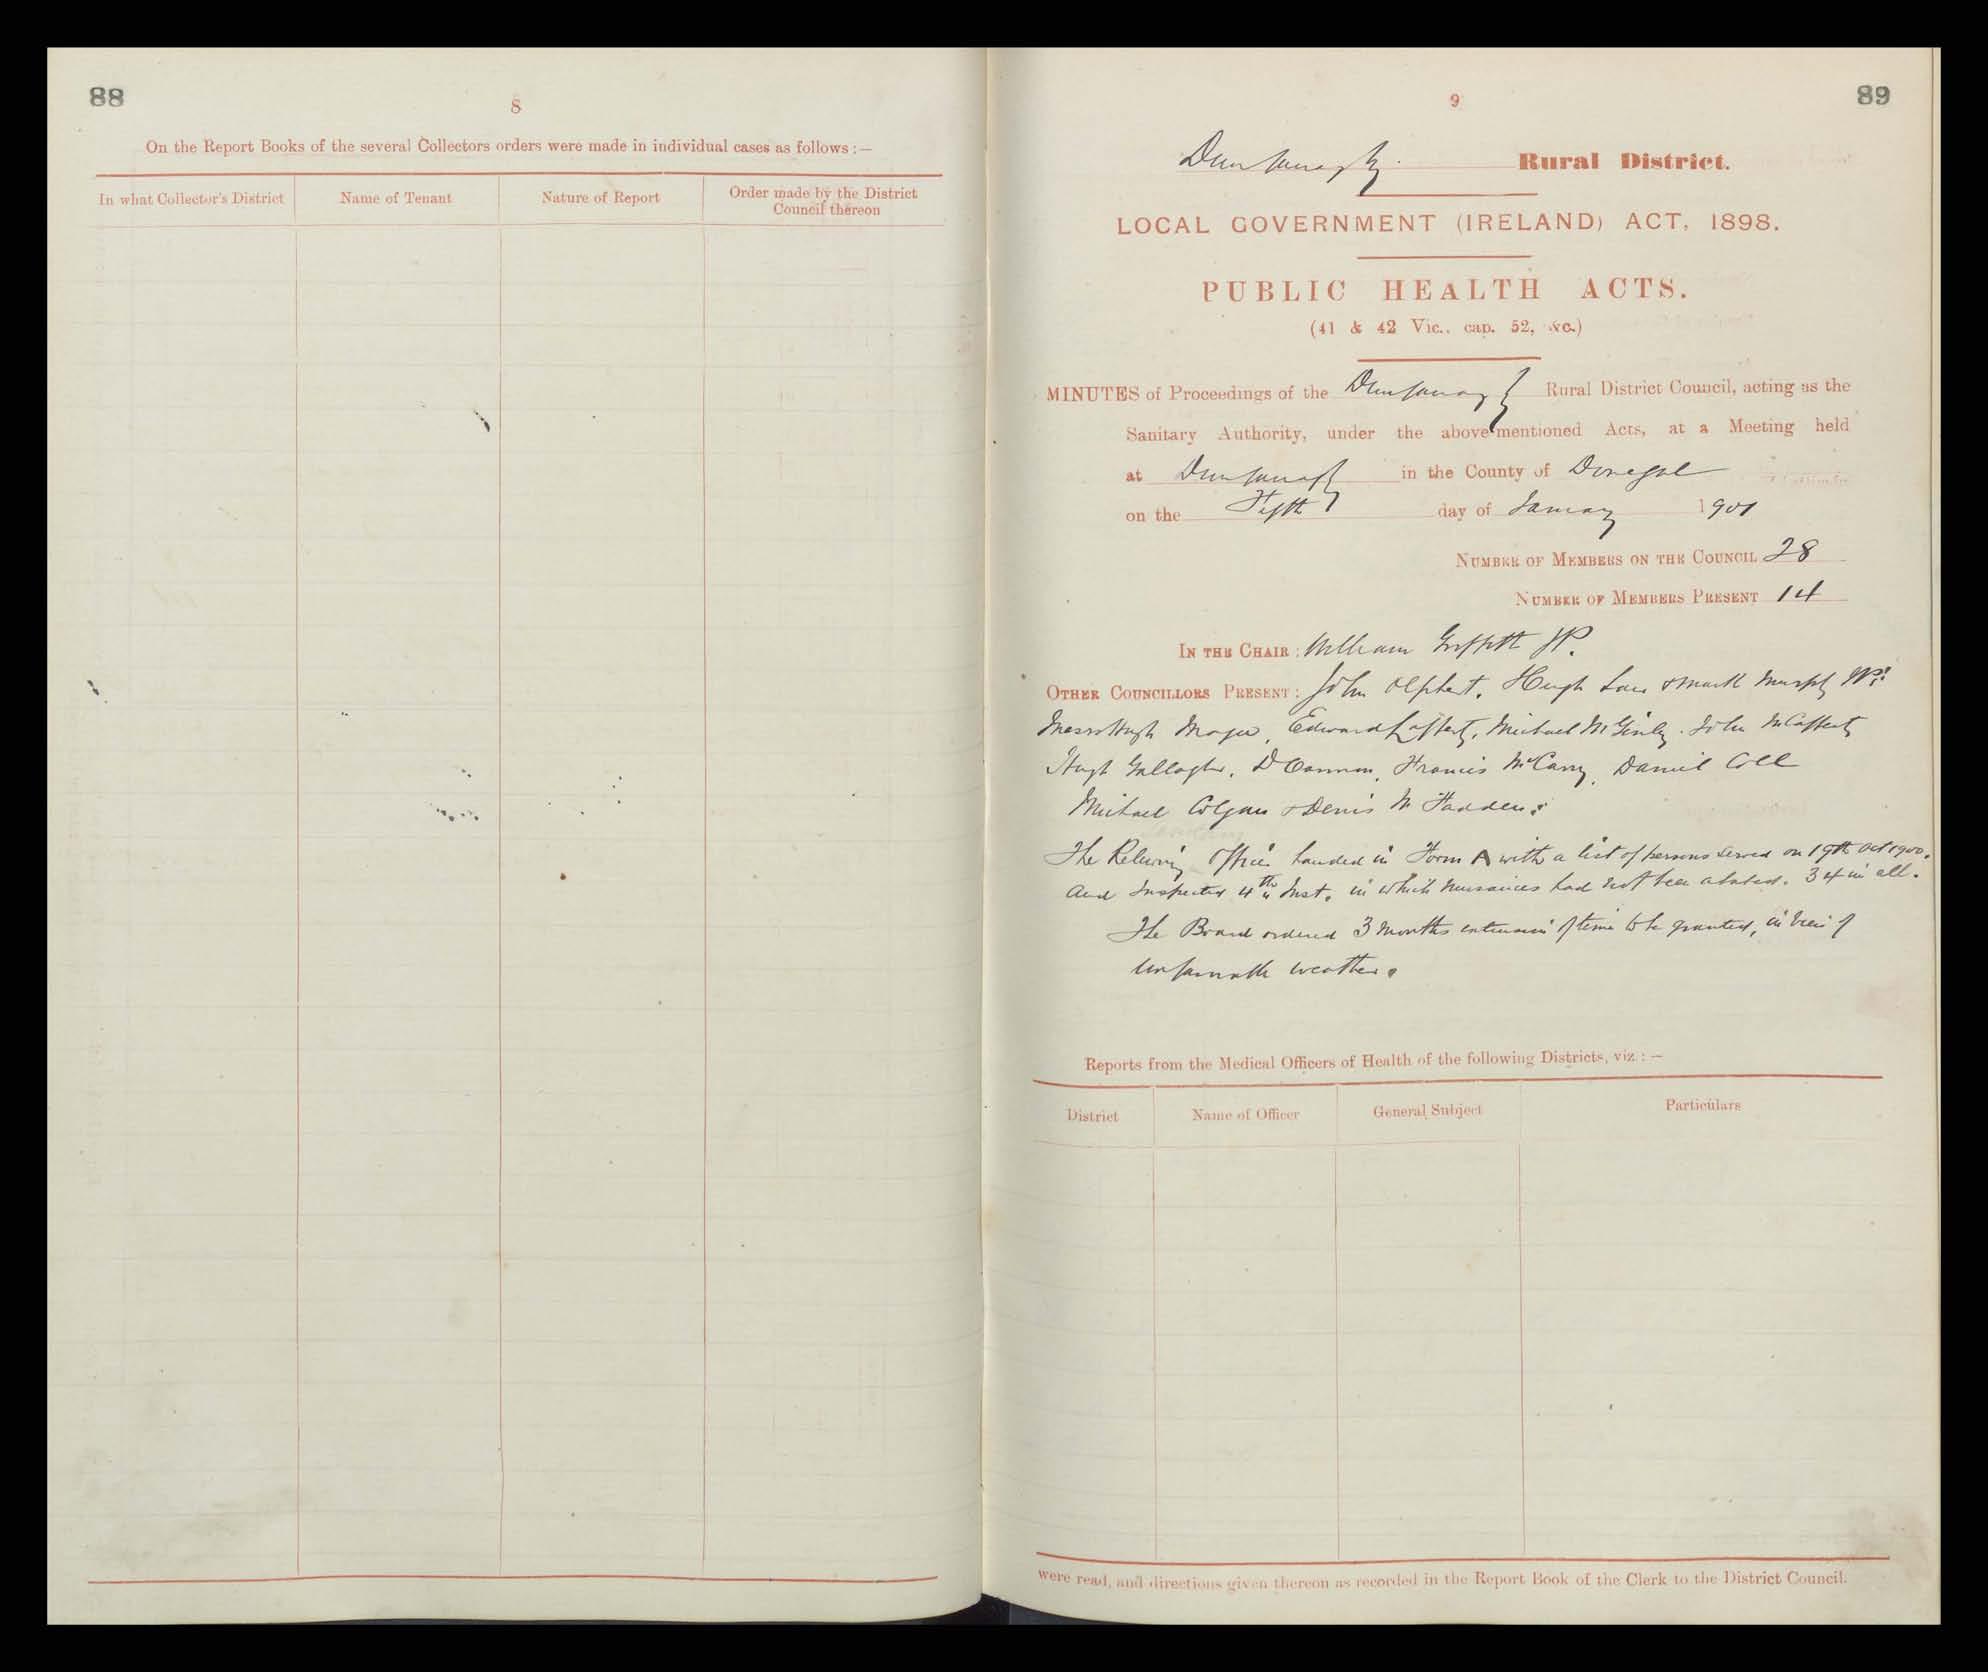 88
8
On the Report Books of the several Collectors orders were made in individual cases as follows :—
In what Collector's District
Name of Tenant
Nature of Report
Order made by the District
Council thereon
89
9
Dunfanaghy Rural District.
LOCAL GOVERNMENT (IRELAND) ACT, 1898.
PUBLIC HEALTH ACTS.
(41 & 42 Vic., cap. 52, &c.)
MINUTES of Proceedings of the Dunfanaghy Rural District Council, acting as the
Sanitary Authority, under the above-mentioned Acts, at a Meeting held
at Dunfanaghy in the County of Donegal
on the Fifth day of January 1901
NUMBER OF MEMBERS ON THE COUNCIL 28
NUMBER OF MEMBERS PRESENT 14
IN THE CHAIR : William Griffith JP.
OTHER COUNCILLORS PRESENT : John Olphert, Hugh Law & Mark Murphy JPs
Messrs Hugh Edward Lafferty, Michael McGinley. John McCafferty
Hugh Gallagher, D Cannon, Francis McCarry, Daniel Coll
Michael Colgan & Denis McFadden.
The Relieving Officer handed in Form A with a list of persons served on 19th Oct 1900.
and Inspected 4th Inst. in which nuisances had not been abated. 34 in all.
The Board ordered 3 months extension of time to be granted, in view of
unfavourable weather.
Reports from the Medical Officers of Health of the following Districts, viz. :—
District
Name of Officer
General Subject
Particulars
were read, and directions given thereon as recorded in the Report Book of the Clerk to the District Council.